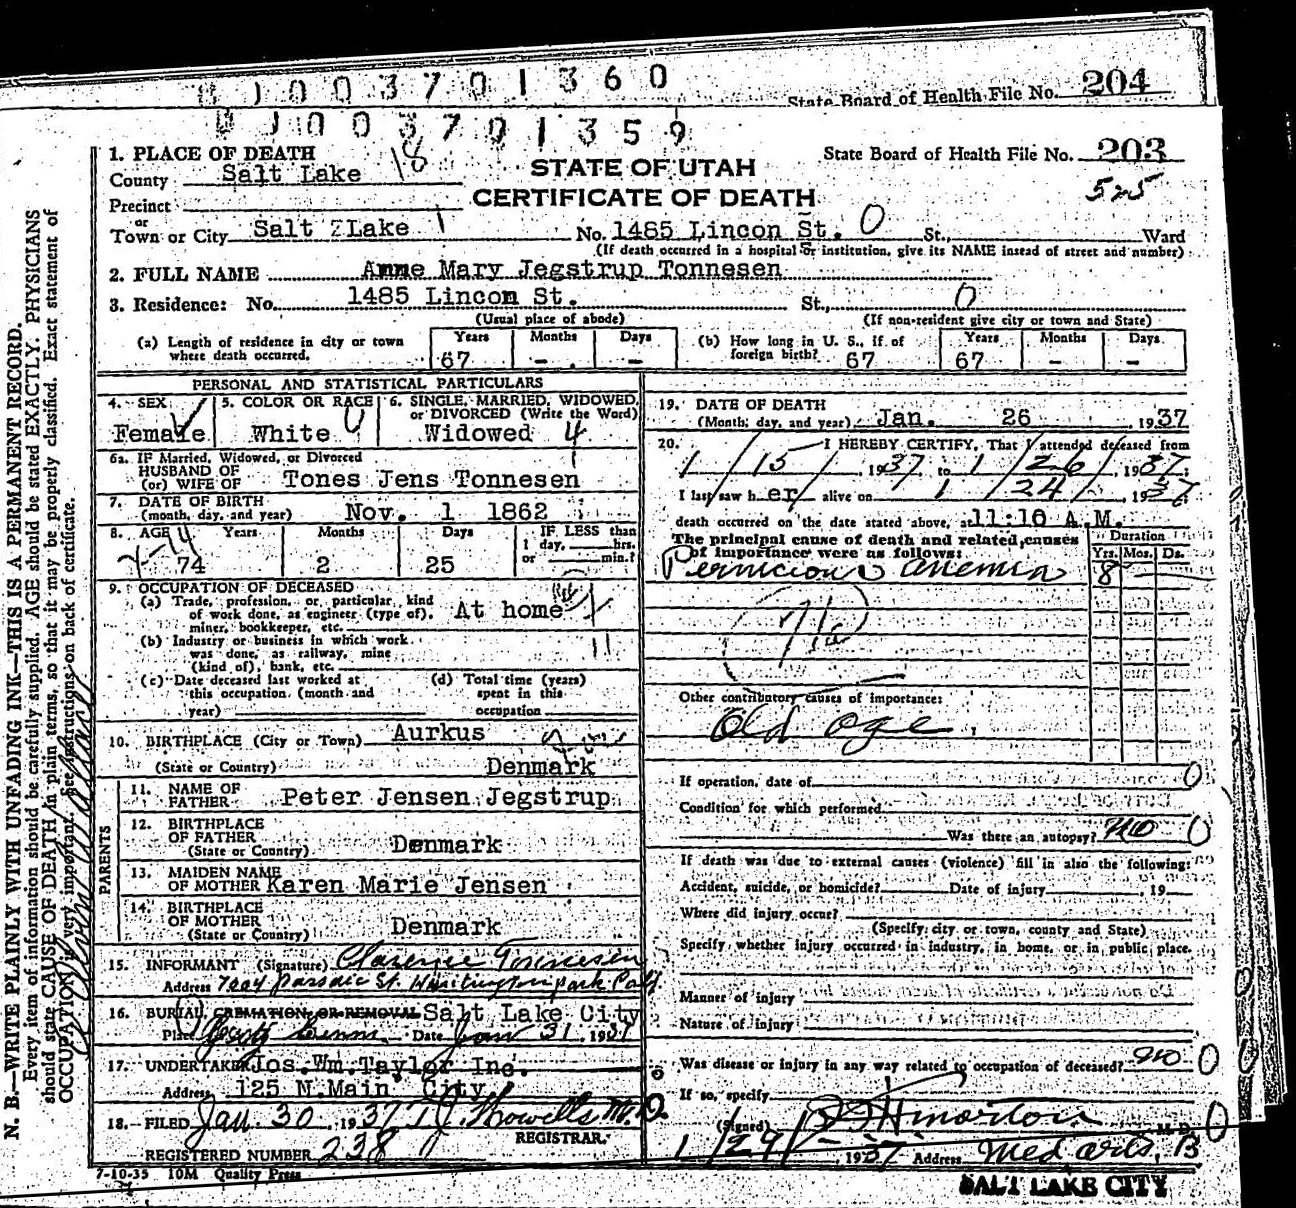 J003701360
State Board of Health File No. 204
J003701359
1. PLACE OF DEATH
18
STATE OF UTAH
State Board of Health File No. 203
County Salt Lake
CERTIFICATE OF DEATH
525
Precinct
or
Town or City Salt Lake 1 No. 1485 Lincon St. 0 St., Ward
(If death occurred in a hospital or institution, give its NAME instead of street and number)
2. FULL NAME Anne Mary Jegstrup Tonnesen
3. Residence: No. 1485 Lincon St. St., 0
(Usual place of abode) (If non-resident give city or town and State)
(a) Length of residence in city or town where death occurred. Years 67 Months - Days -
(b) How long in U. S., if of foreign birth? 67 Years 67 Months - Days -
PERSONAL AND STATISTICAL PARTICULARS
4. SEX Female
5. COLOR OR RACE White
6. SINGLE, MARRIED, WIDOWED, or DIVORCED (Write the Word) Widowed 4
6a. IF Married, Widowed, or Divorced
HUSBAND OF
(or) WIFE OF Tones Jens Tonnesen
7. DATE OF BIRTH
(month, day, and year) Nov. 1 1862
8. AGE Years 74 Months 2 Days 25
IF LESS than
1 day, hrs.
or min.?
9. OCCUPATION OF DECEASED
(a) Trade, profession, or particular kind
of work done, as engineer (type of),
miner, bookkeeper, etc. At home
(b) Industry or business in which work
was done, as railway, mine
(kind of), bank, etc.
(c) Date deceased last worked at
this occupation (month and
year)
(d) Total time (years)
spent in this
occupation
10. BIRTHPLACE (City or Town) Aurkus
(State or Country) Denmark
PARENTS
11. NAME OF
FATHER Peter Jensen Jegstrup
12. BIRTHPLACE
OF FATHER
(State or Country) Denmark
13. MAIDEN NAME
OF MOTHER Karen Marie Jensen
14. BIRTHPLACE
OF MOTHER
(State or Country) Denmark
15. INFORMANT (Signature) Clarence Tonnesen
Address St. Huntington Park Calif.
16. BURIAL, CREMATION OR REMOVAL Salt Lake City
Place City Cem. Date Jan 31 1937
17. UNDERTAKER Jos. Wm. Taylor Inc.
Address 125 N.Main, City
18. FILED Jan. 30, 1937 T J Howells M.D.
REGISTRAR.
REGISTERED NUMBER 238
7-10-35 10M Quality Press
19. DATE OF DEATH
(Month, day, and year) Jan. 26, 1937
20. I HEREBY CERTIFY, That I attended deceased from
1/15/1937, to 1/26/1937.
I last saw her alive on 1/24 1937
death occurred on the date stated above, at 11:10 A.M.
The principal cause of death and related causes
of importance were as follows:
Duration
Yrs. Mos. Ds.
Pernicious anemia 8
71a
Other contributory causes of importance:
Old age
If operation, date of 0
Condition for which performed
Was there an autopsy? no 0
If death was due to external causes (violence) fill in also the following:
Accident, suicide, or homicide? Date of injury , 19
Where did injury occur?
(Specify city or town, county and State)
Specify whether injury occurred in industry, in home, or in public place.
Manner of injury
Nature of injury
Was disease or injury in any way related to occupation of deceased? no 0
If so, specify
(Signed) Morton M. D.
1/29/1937 Address Med arts, B
SALT LAKE CITY
N. B.—WRITE PLAINLY WITH UNFADING INK—THIS IS A PERMANENT RECORD.
Every item of information should be carefully supplied. AGE should be stated EXACTLY. PHYSICIANS
should state CAUSE OF DEATH in plain terms, so that it may be properly classified. Exact statement of
OCCUPATION is very important. See instructions on back of certificate.